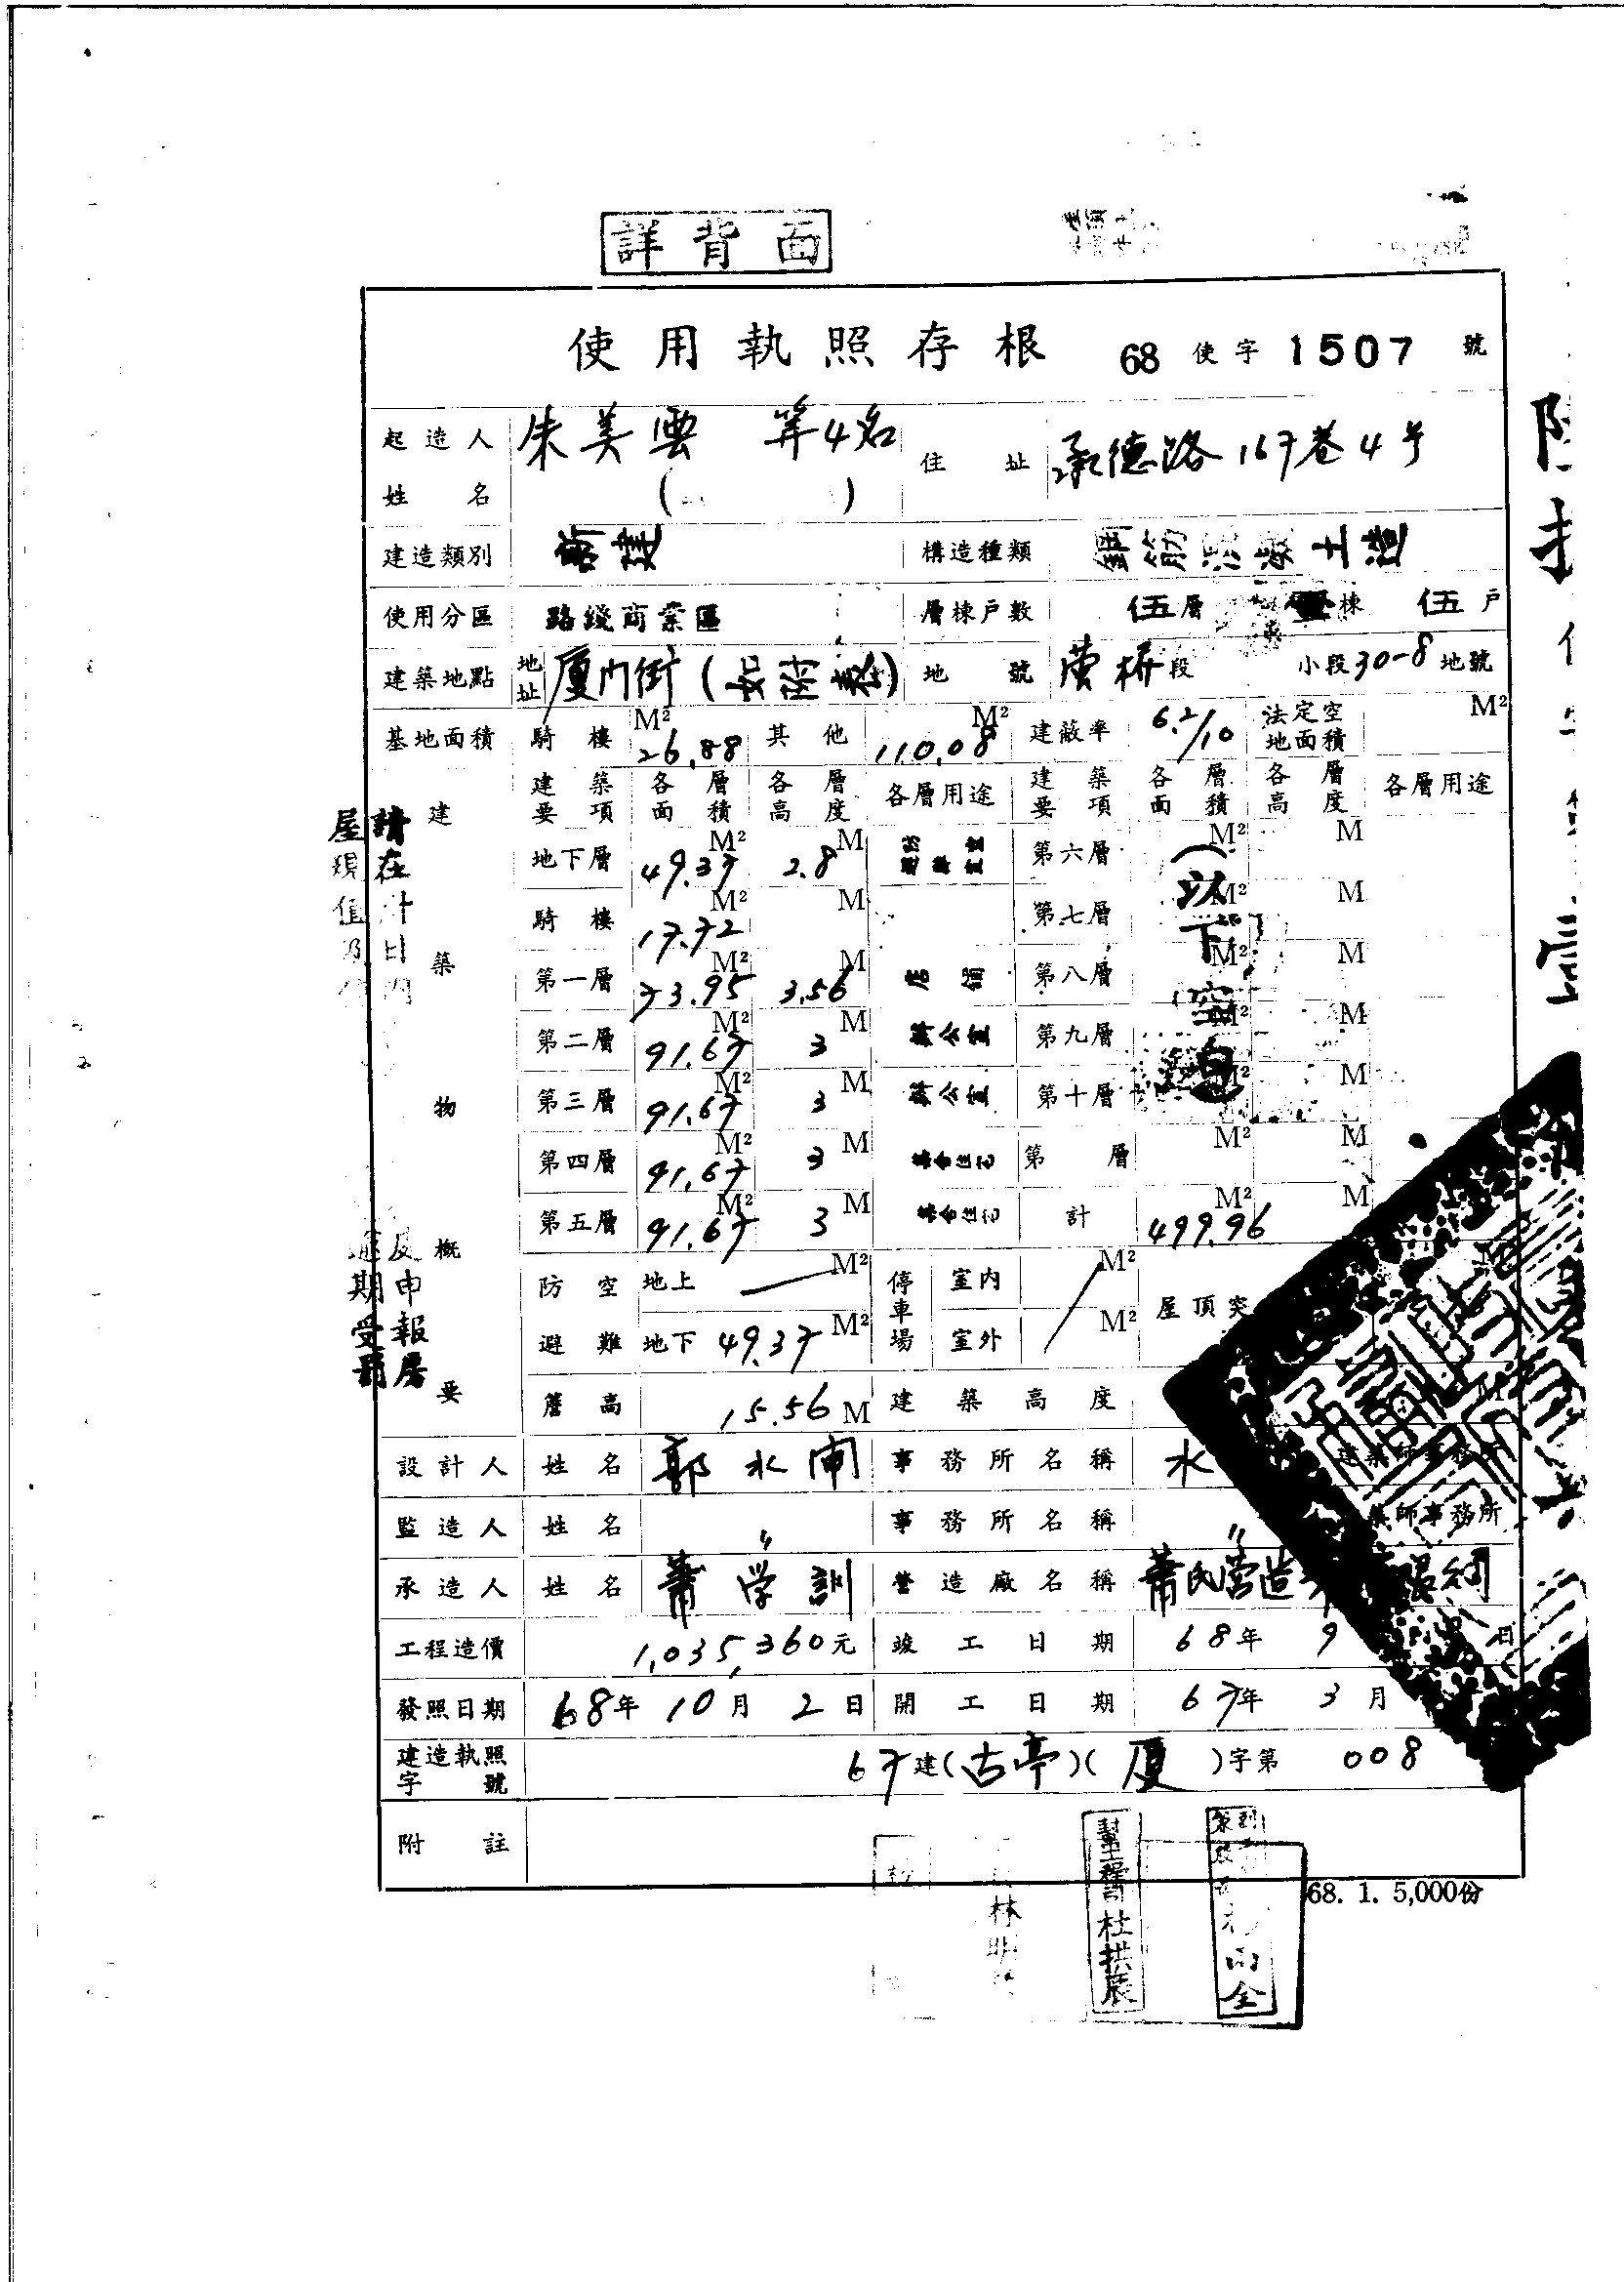 詳背面
使用執照存根 68 使字 1507 號
起造人姓名 朱美雲 等4名 住址 承德路167巷4号
建造類別 新建 構造種類 鋼筋混凝土造
使用分區 路綫商業區 層棟戶數 伍層 壹棟 伍戶
建築地點 地址 厦門街 地號 段 小段30-8地號
基地面積 騎樓 26.88 M² 其他 110.08 M² 建蔽率 6.2/10 法定空地面積 M²
建築物概要 建築要項 各層面積 各層高度 各層用途 建築要項 各層面積 各層高度 各層用途
地下層 49.37 M² 2.8 M 第六層 M² M
騎樓 17.72 M² M 第七層 M² M
第一層 73.95 M² 3.56 M 店舖 第八層 M² M
第二層 91.67 M² 3 M 辦公室 第九層 M² M
第三層 91.67 M² 3 M 辦公室 第十層 M² M
第四層 91.67 M² 3 M 集合住宅 第 層 M² M
第五層 91.67 M² 3 M 集合住宅 計 499.96 M² M
(以下空白
防空避難 地上 M² 停車場 室內 M² 屋頂突
地下 49.37 M² 室外 M²
簷高 15.56 M 建築高度 M
設計人 姓名 郭水 事務所名稱 水 建築師事務所
監造人 姓名 〃 事務所名稱 〃 築師事務所
承造人 姓名 蕭学訓 營造廠名稱 蕭氏营造 限公司
工程造價 1,035,360元 竣工日期 68年 9 日
發照日期 68年10月2日 開工日期 67年3月
建造執照字號 67建(古亭)(厦)字第 008
附註
68. 1. 5,000份
請在 日內
及申報房
屋現值
逾期受罰
林明
杜拱辰